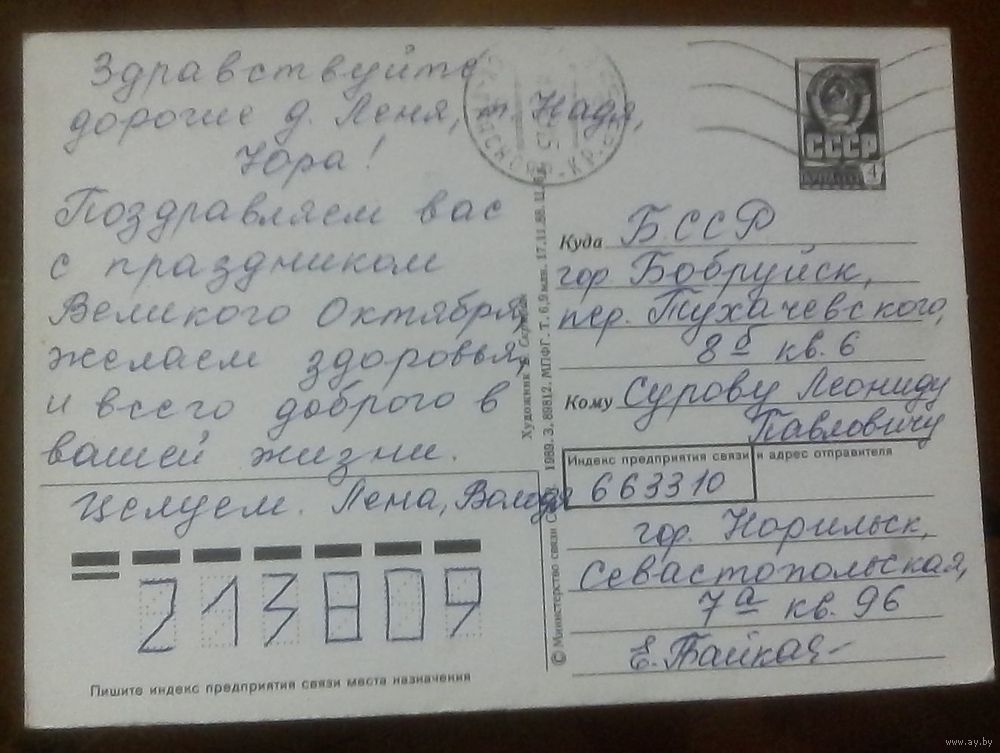 Здравствуйте
дорогие д. Леня, т. Надя,
Юра!
Поздравляем вас
с праздником
Великого Октября,
желаем здоровья,
и всего доброго в
вашей жизни.
Целуем. Лена, Володя
213809
Пишите индекс предприятия связи места назначения
© Министерство связи
1989. З. 89812. МПФГ. Т. 6,9 млн. 17.11.88. Ц.
Художник
СССР
4
Куда БССР
гор Бобруйск,
пер. Тухачевского,
8б кв. 6
Кому Сурову Леониду
Павловичу
Индекс предприятия связи и адрес отправителя
663310
гор. Норильск,
Севастопольская,
7а кв. 96
www.ay.by